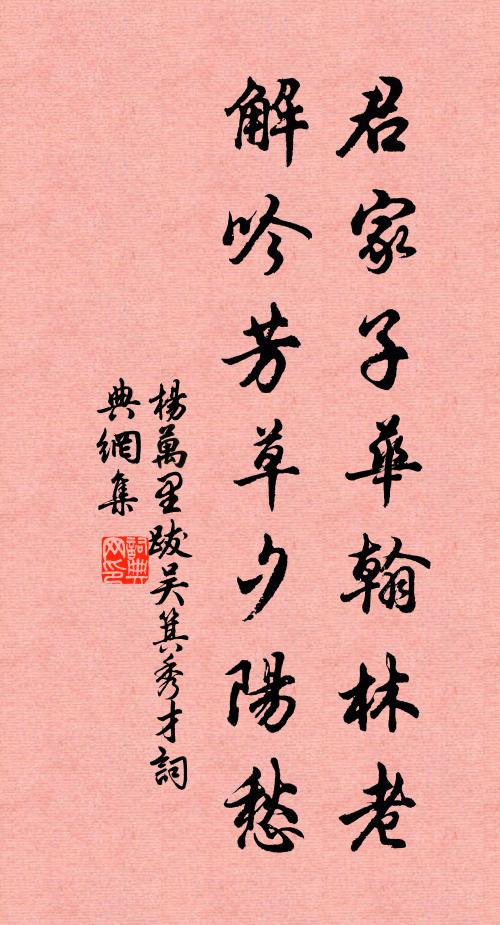 君家子華翰林老
解吟芳草夕陽愁
楊萬里跋吴箕秀才詞
典網集
詞典网印